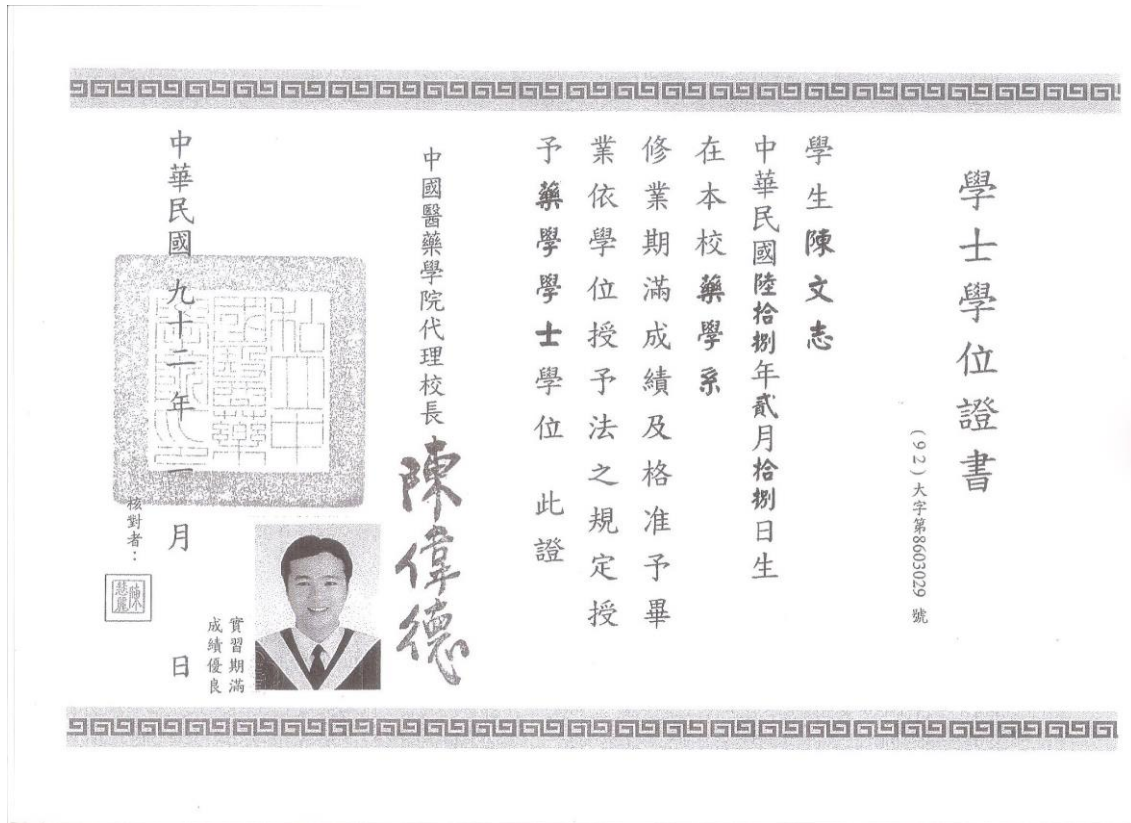 學士學位證書
(92)大字第8603029 號
學生陳文志
中華民國陸拾捌年貳月拾捌日生
在本校藥學系
修業期滿成績及格准予畢
業依學位授予法之規定授
予藥學學士學位 此證
中國醫藥學院代理校長 陳偉德
實習期滿
成績優良
中華民國九十二年一月 日
核對者：